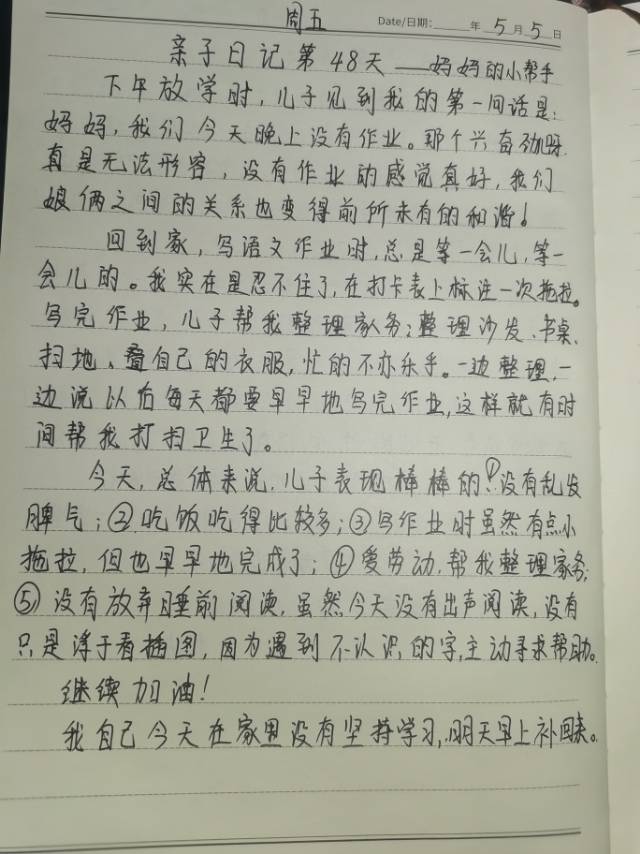 周五
Date/日期: 年 5 月 5 日
亲子日记第48天——妈妈的小帮手
下午放学时,儿子见到我的第一间话是:
妈妈,我们今天晚上没有作业。那个兴奋劲呀
真是无法形容,没有作业的感觉真好,我们
娘俩之间的关系也变得前所未有的和谐!
回到家,写语文作业时,总是等一会儿,等一
会儿的。我实在是忍不住了,在打卡表上标注一次拖拉。
写完作业,儿子帮我整理家务:整理沙发、书桌、
扫地、叠自己的衣服,忙的不亦乐乎。一边整理,一
边说以后每天都要早早地写完作业,这样就有时
间帮我打扫卫生了。
今天,总体来说,儿子表现棒棒的!①没有乱发
脾气;②吃饭吃得比较多;③写作业时虽然有点小
拖拉,但也早早地完成了;④爱劳动,帮我整理家务;
⑤没有放弃睡前阅读,虽然今天没有出声阅读,没有
只是浮于看插图,因为遇到不认识的字,主动寻求帮助。
继续加油!
我自己今天在家里没有坚持学习,明天早上补回来。